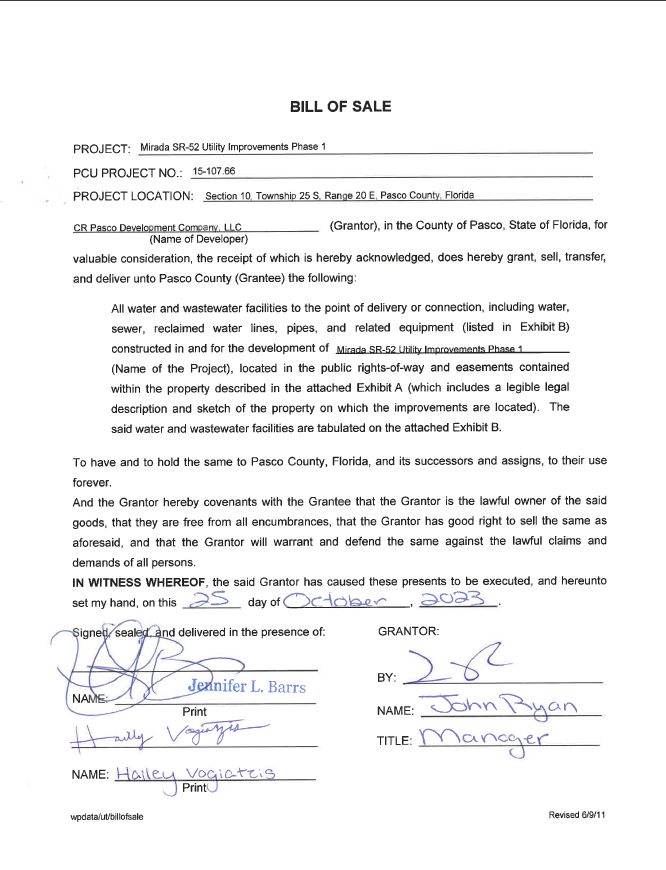 BILL OF SALE
PROJECT: Mirada SR-52 Utility Improvements Phase 1
PCU PROJECT NO.: 15-107.66
PROJECT LOCATION: Section 10, Township 25 S, Range 20 E, Pasco County, Florida
CR Pasco Development Company, LLC (Grantor), in the County of Pasco, State of Florida, for
(Name of Developer)
valuable consideration, the receipt of which is hereby acknowledged, does hereby grant, sell, transfer,
and deliver unto Pasco County (Grantee) the following:
All water and wastewater facilities to the point of delivery or connection, including water,
sewer, reclaimed water lines, pipes, and related equipment (listed in Exhibit B)
constructed in and for the development of Mirada SR-52 Utility Improvements Phase 1
(Name of the Project), located in the public rights-of-way and easements contained
within the property described in the attached Exhibit A (which includes a legible legal
description and sketch of the property on which the improvements are located). The
said water and wastewater facilities are tabulated on the attached Exhibit B.
To have and to hold the same to Pasco County, Florida, and its successors and assigns, to their use
forever.
And the Grantor hereby covenants with the Grantee that the Grantor is the lawful owner of the said
goods, that they are free from all encumbrances, that the Grantor has good right to sell the same as
aforesaid, and that the Grantor will warrant and defend the same against the lawful claims and
demands of all persons.
IN WITNESS WHEREOF, the said Grantor has caused these presents to be executed, and hereunto
set my hand, on this 25 day of October, 2023.
Signed, sealed, and delivered in the presence of: GRANTOR:
BY:
NAME: Jennifer L. Barrs
Print
NAME: John Ryan
Hailey Vogiatzis
TITLE: Manager
NAME: Hailey Vogiatzis
Print
wpdata/ut/billofsale Revised 6/9/11